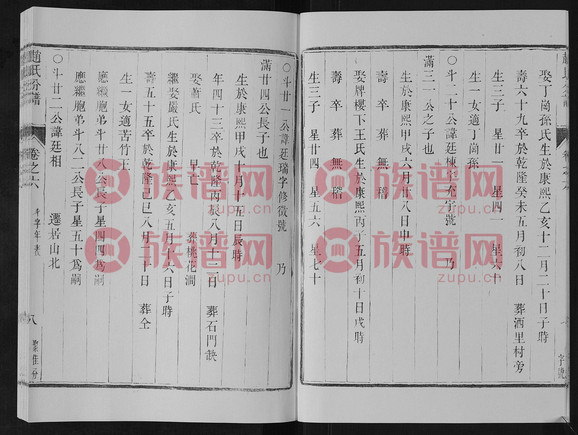 娶丁尚孫氏生於康熙乙亥十二月二十日子時
壽六十九卒於乾隆癸未五月初八日 葬酒里村旁
生三子 星一 星四一 星六十
生一女適丁尚孫
○斗二十公諱廷棟 字號 乃
滿三一公之子也
生於康熙甲戌六月十八日申時
娶牌樓下王氏生於康熙丙子五月初十日戌時
壽 卒 葬 無 稽
生三子 星廿四 星五六 星七十
趙氏分譜
卷之六
斗字年表
八
○斗廿一公諱廷瑞字修徵號 乃
滿廿四公長子也
生於康熙甲戌十月十五日辰時
年四十三卒於乾隆丙辰八月十二日 葬石門缺
娶蕭氏 早亡 葬桃花澗
繼娶嚴氏生於康熙乙亥五月十六日子時
壽五十五卒於乾隆己巳八月二十日 葬仝
生一女適苦竹王
應繼胞弟斗廿八公長子星四四爲嗣
應繼胞弟斗八二公長子星五十爲嗣
○斗廿二公諱廷相 遷居山北
族谱网
zupu.cn
族谱网
zupu.cn
族谱网
zupu.cn
族谱网
zupu.cn